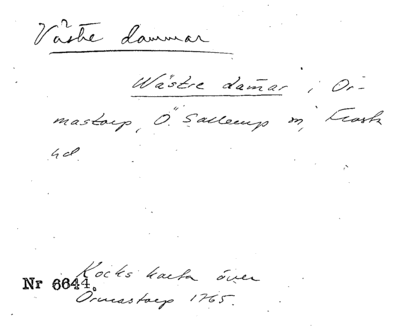 Västre dammar
Wästre dam̄ar i Or-
mastorp, Ö. Sallerup sn, Frosta
hd.
Kocks karta över
Nr 6644.
Ormastorp 1765.